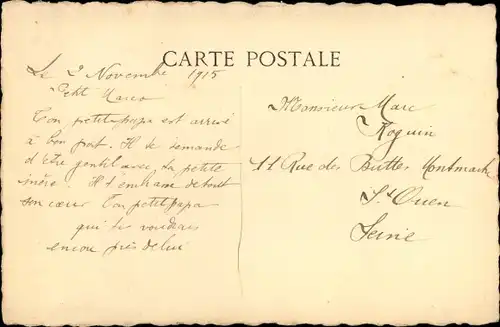 CARTE POSTALE
Le 2 Novembre 1915
Petit Marco
Ton petit papa est arrivé
à bon port. Il te demande
d'être gentil avec ta petite
mère. Il t'embrasse de tout
son cœur Ton petit papa
qui te voudrais
encor près de lui
Monsieur Marc
Roguin
11 Rue des Buttes Montmartre
St Ouen
Seine